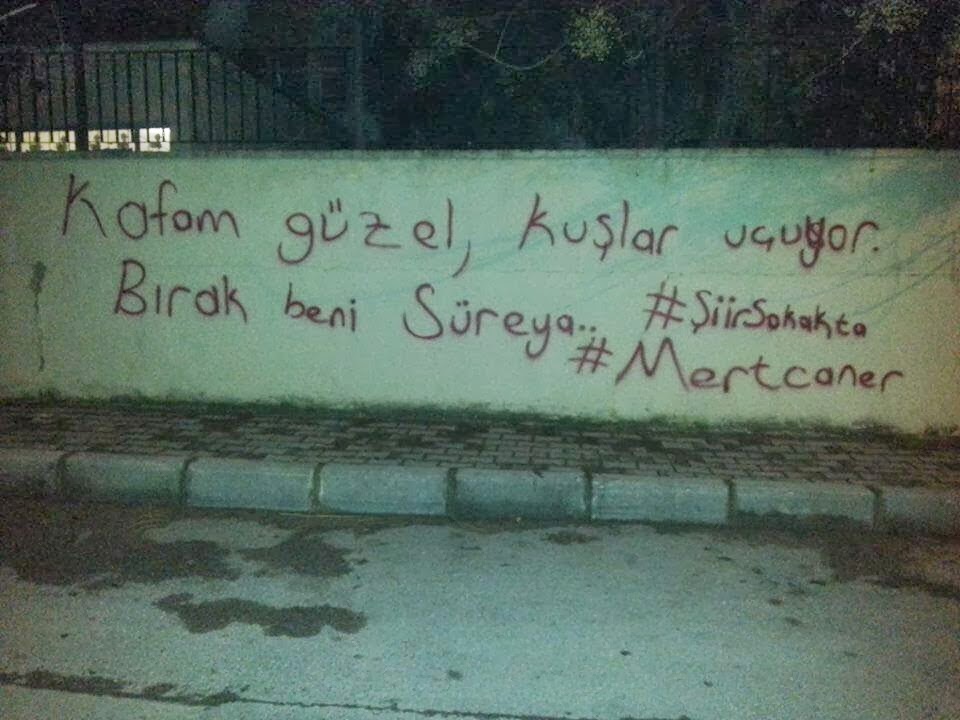 Kafam güzel, kuşlar uçuyor.
Bırak beni Süreya.. #ŞiirSokakta
#Mertcaner